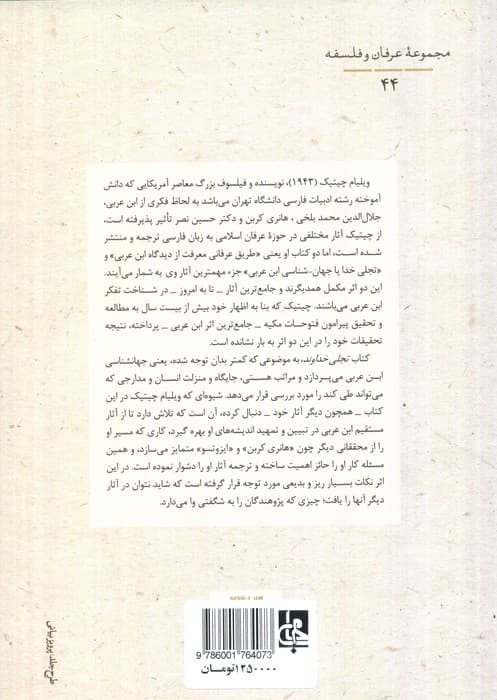 مجموعهٔ عرفان و فلسفه
۴۴
ویلیام چیتیک (۱۹۴۳)، نویسنده و فیلسوف بزرگ معاصر آمریکایی که دانش
آموخته رشته ادبیات فارسی دانشگاه تهران می‌باشد به لحاظ فکری از ابن عربی،
جلال‌الدین محمد بلخی، هانری کربن و دکتر حسین نصر تأثیر پذیرفته است،
از چیتیک آثار مختلفی در حوزهٔ عرفان اسلامی به زبان فارسی ترجمه و منتشر
شده است، اما دو کتاب او یعنی «طریق عرفانی معرفت از دیدگاه ابن عربی» و
«تجلی خدا یا جهان-شناسی ابن عربی» جزء مهمترین آثار وی به شمار می‌آیند.
این دو اثر مکمل همدیگرند و جامع‌ترین آثار _ تا به امروز _ در شناخت تفکر
ابن عربی می‌باشند. چیتیک که بنا به اظهار خود بیش از بیست سال به مطالعه
و تحقیق پیرامون فتوحات مکیه _ جامع‌ترین اثر ابن عربی _ پرداخته، نتیجه
تحقیقات خود را در این دو اثر به بار نشانده است.
کتاب تجلی خداوند، به موضوعی که کمتر بدان توجه شده، یعنی جهانشناسی
ابن عربی می‌پردازد و مراتب هستی، جایگاه و منزلت انسان و مدارجی که
می‌تواند طی کند را مورد بررسی قرار می‌دهد. شیوه‌ای که ویلیام چیتیک در این
کتاب _ همچون دیگر آثار خود _ دنبال کرده، آن است که تلاش دارد تا از آثار
مستقیم ابن عربی در تبیین و تمهید اندیشه‌های او بهره گیرد، کاری که مسیر او
را از محققانی دیگر چون «هانری کربن» و «ایزوتسو» متمایز می‌سازد، و همین
مسئله کار او را حائز اهمیت ساخته و ترجمه آثار او را دشوار نموده است. در این
اثر نکات بسیار ریز و بدیعی مورد توجه قرار گرفته است که شاید نتوان در آثار
دیگر آنها را یافت؛ چیزی که پژوهندگان را به شگفتی وا می‌دارد.
طرح جلد: پرویز بیانی
9 786001 764073
۱۲۵۰۰۰۰ تومـان